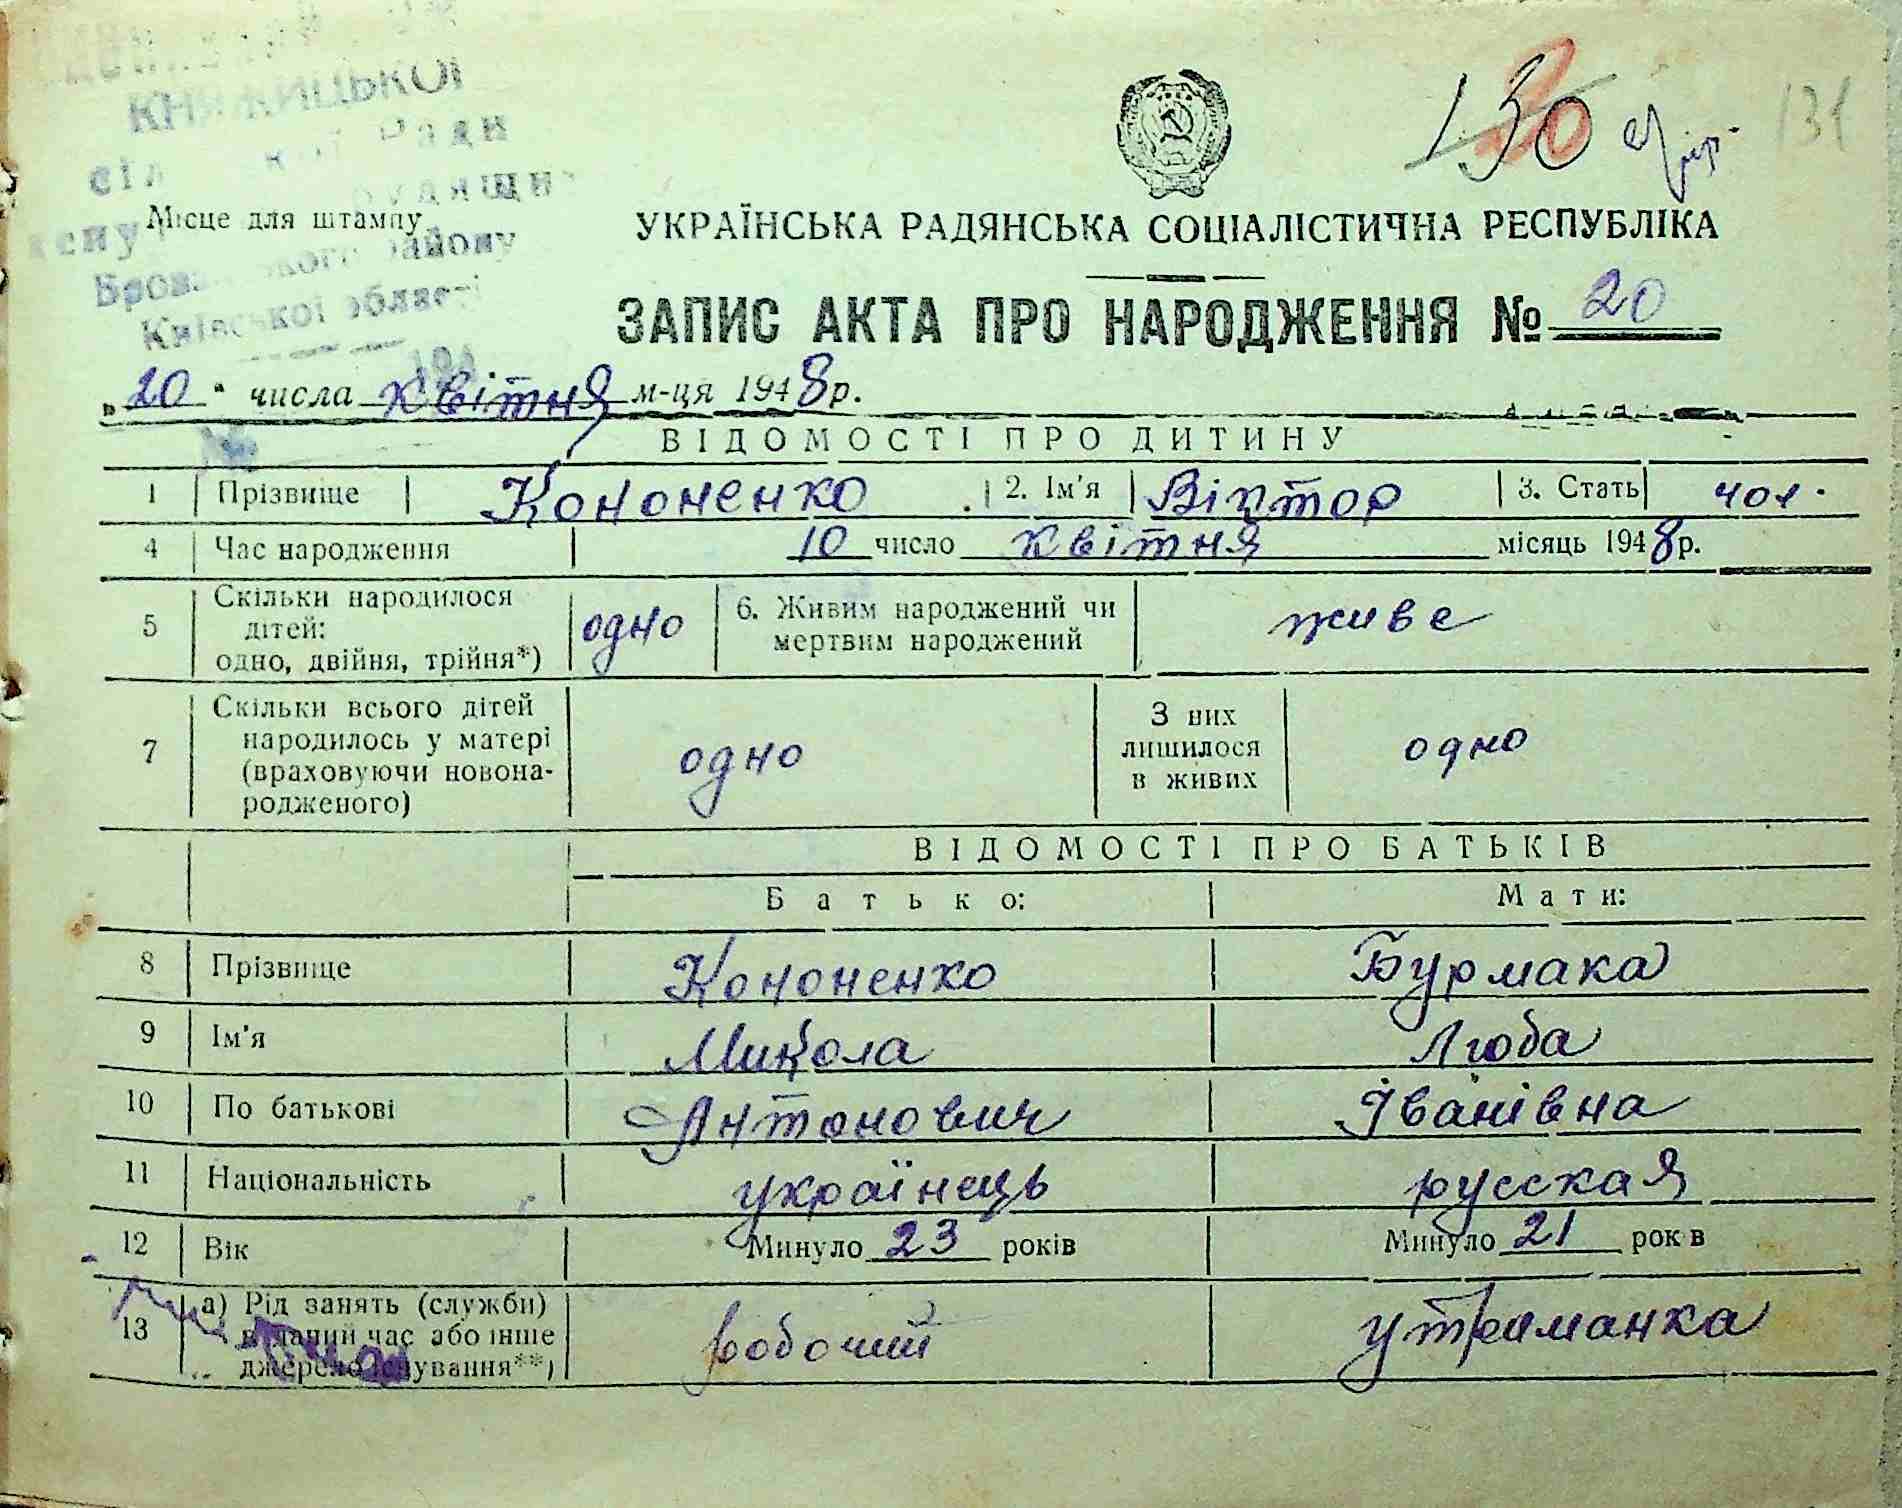 КНЯЖИЦЬКОЇ
Ради
Місце для штампу
району
Київської області
130
131
УКРАЇНСЬКА РАДЯНСЬКА СОЦІАЛІСТИЧНА РЕСПУБЛІКА
ЗАПИС АКТА ПРО НАРОДЖЕННЯ № 20
„20“ числа квітня м-ця 1948 р.
ВІДОМОСТІ ПРО ДИТИНУ
1 Прізвище Кононенко 2. Ім'я Віктор 3. Стать чол.
4 Час народження 10 число квітня місяць 1948 р.
5 Скільки народилося дітей: одно, двійня, трійня*) одно 6. Живим народжений чи мертвим народжений живе
7 Скільки всього дітей народилось у матері (враховуючи новонародженого) одно З них лишилося в живих одно
ВІДОМОСТІ ПРО БАТЬКІВ
Батько: Мати:
8 Прізвище Кононенко Бурмака
9 Ім'я Микола Люба
10 По батькові Антонович Іванівна
11 Національність українець русская
12 Вік Минуло 23 років Минуло 21 рок в
13 а) Рід занять (служби) в даний час або інше джерело існування**) робочий утриманка